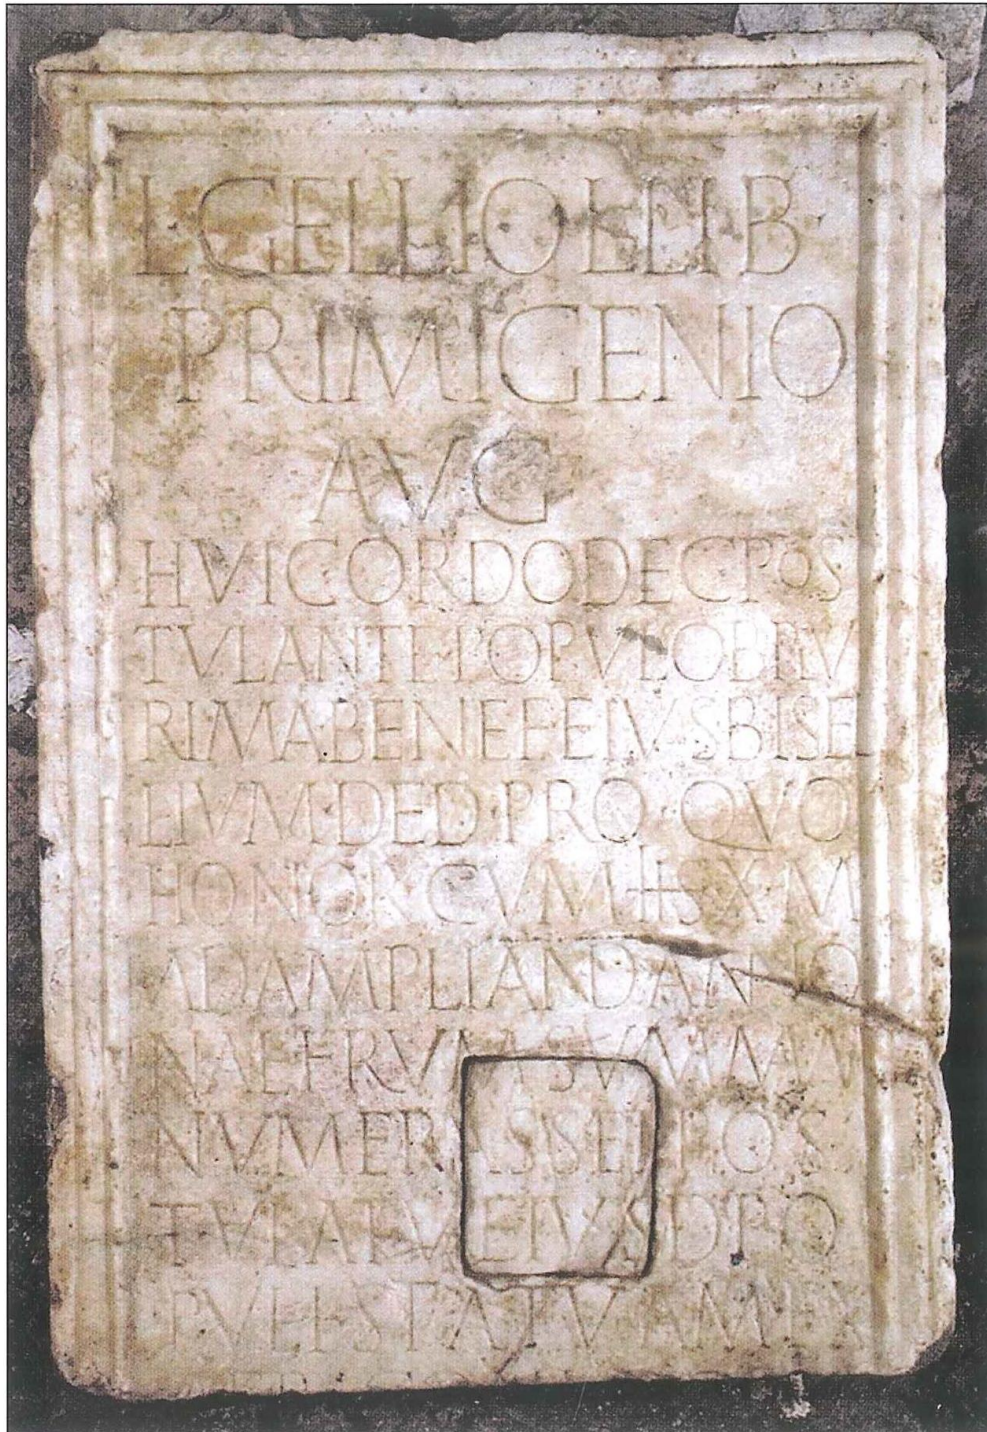 L GELLIO L LIB
PRIMIGENIO
AVG
HVIC ORDO DEC POS
TVLANTE POPVLO OB PLV
RIMA BENEF EIVS BISEL
LIVM DED PRO QVO
HONOR CVM HS X M
AD AMPLIAND ANNO
NAE FRVM SVMMAM
NVMERASSET POS
TVLATV EIVSD PO
PVLI STATVAM EX